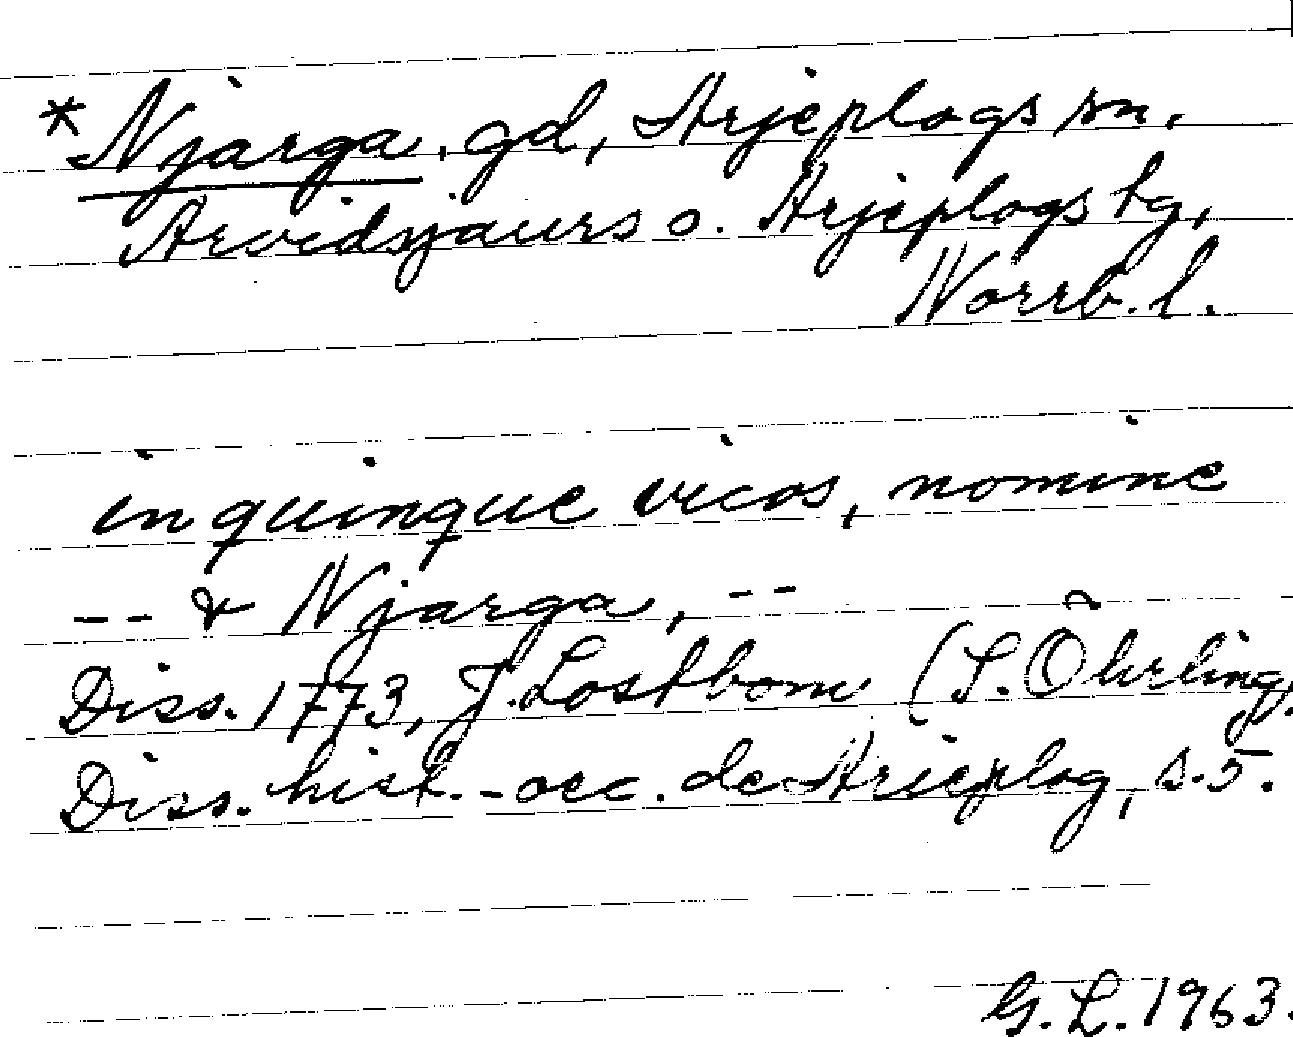 * Njarga, gd, Arjeplogs sn.
Arvidsjaurs o. Arjeplogs tg,
Norrb. l.
in quinque vicos, nomine
-- & Njarga, --
Diss. 1773, J. Lostbom (L. Öhrling,
Diss. hist.-oec. de Arieplog, s. 5.
G. L. 1963.